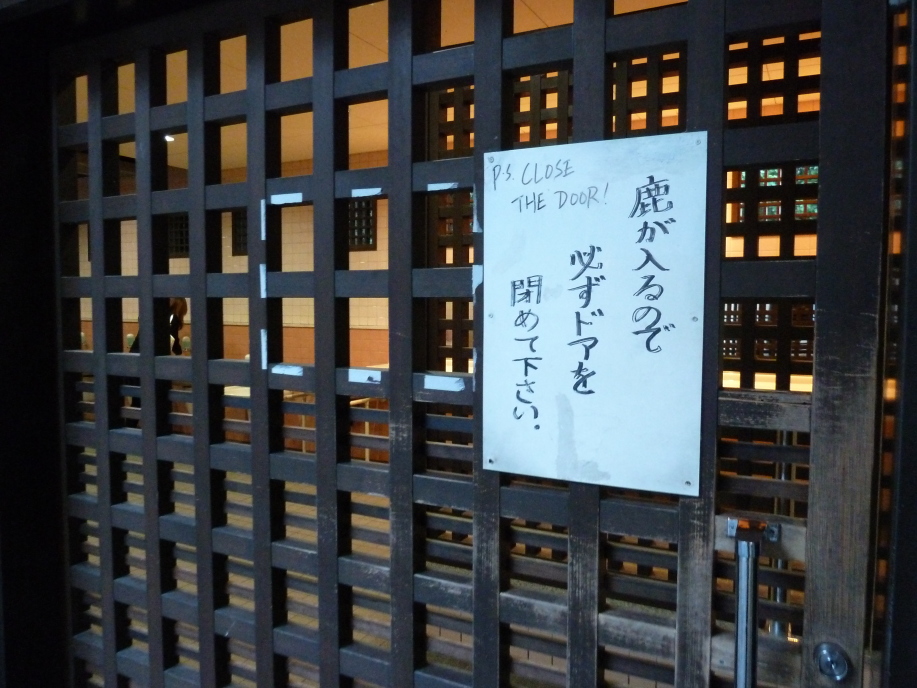 P.S. CLOSE
THE DOOR!
鹿が入るので
必ずドアを
閉めて下さい.